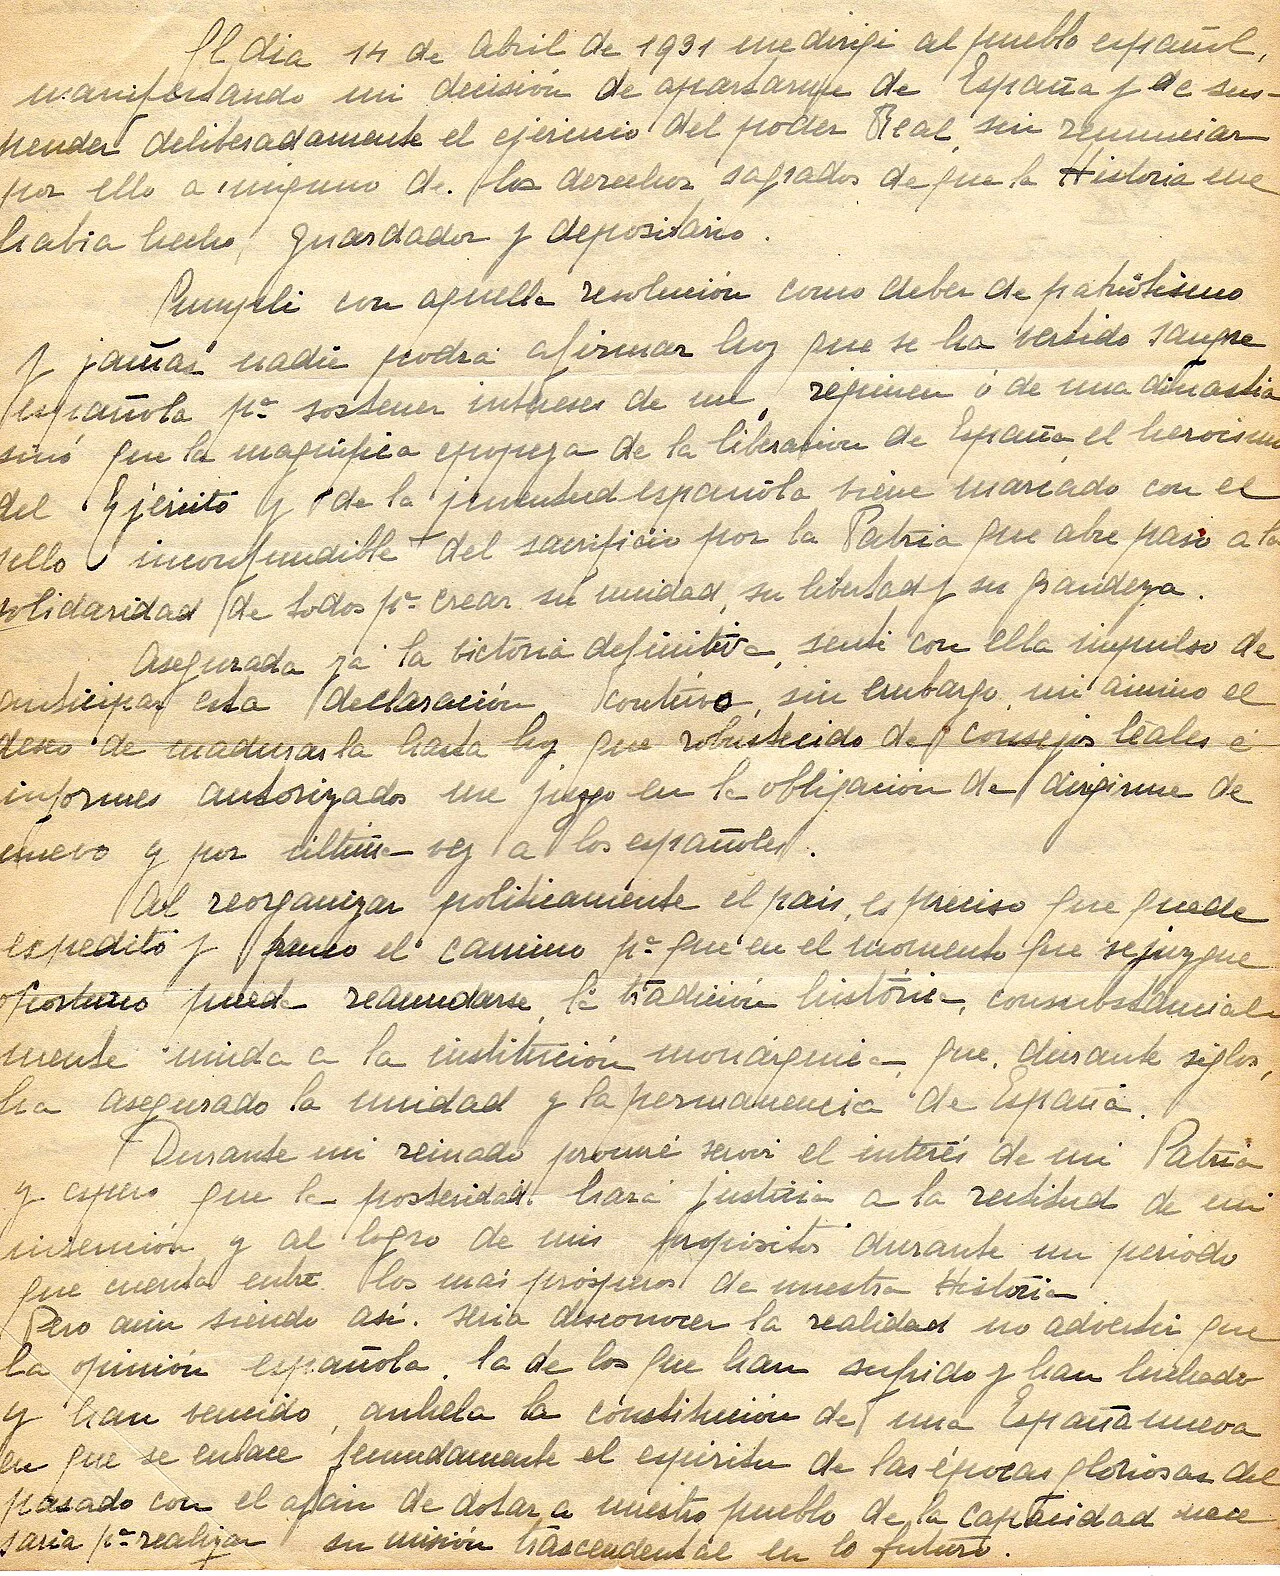 El dia 14 de Abril de 1931 me dirigi al pueblo español,
manifestando mi decisión de apartarme de España y de sus-
pender deliberadamente el ejercicio del poder Real, sin renunciar
por ello a ninguno de los derechos sagrados de que la Historia me
habia hecho guardador y depositario.
Cumpli con aquella resolución como deber de patriotismo
y jamás nadie podrá afirmar hoy que se ha vertido sangre
española pª sostener intereses de un regimen ó de una dinastia
sinó que la magnifica epopeya de la liberacion de España, el heroismo
del Ejército y de la juventud española viene marcado con el
sello inconfundible del sacrificio por la Patria que abre paso a la
solidaridad de todos pª crear su unidad, su libertad y su grandeza.
Asegurada ya la victoria definitiva, senti con ella impulso de
anticipar esta declaración, contuvo, sin embargo, mi animo el
deseo de madurarla hasta hoy que robustecido de consejos leales é
informes autorizados me juzgo en la obligación de dirigirme de
nuevo y por última vez a los españoles.
Al reorganizar politicamente el pais, es preciso que quede
expedito y franco el camino pª que en el momento que se juzgue
oportuno pueda reanudarse la tradición histórica, consubstancial-
mente unida a la institución monárquica, que, durante siglos,
ha asegurado la unidad y la permanencia de España.
Durante mi reinado procuré servir el interés de mi Patria
y espero que la posteridad hará justicia a la rectitud de mi
intención y al logro de mis propositos durante un periodo
que cuenta entre los mas prósperos de nuestra Historia
Pero aún siendo asi. seria desconocer la realidad no advertir que
la opinión española, la de los que han sufrido y han luchado
y han vencido, anhela la constitución de una España nueva
en que se enlace fecundamente el espiritu de las épocas gloriosas del
pasado con el afán de dotar a nuestro pueblo de la capacidad nece
saria pª realizar su misión trascendental en lo futuro.